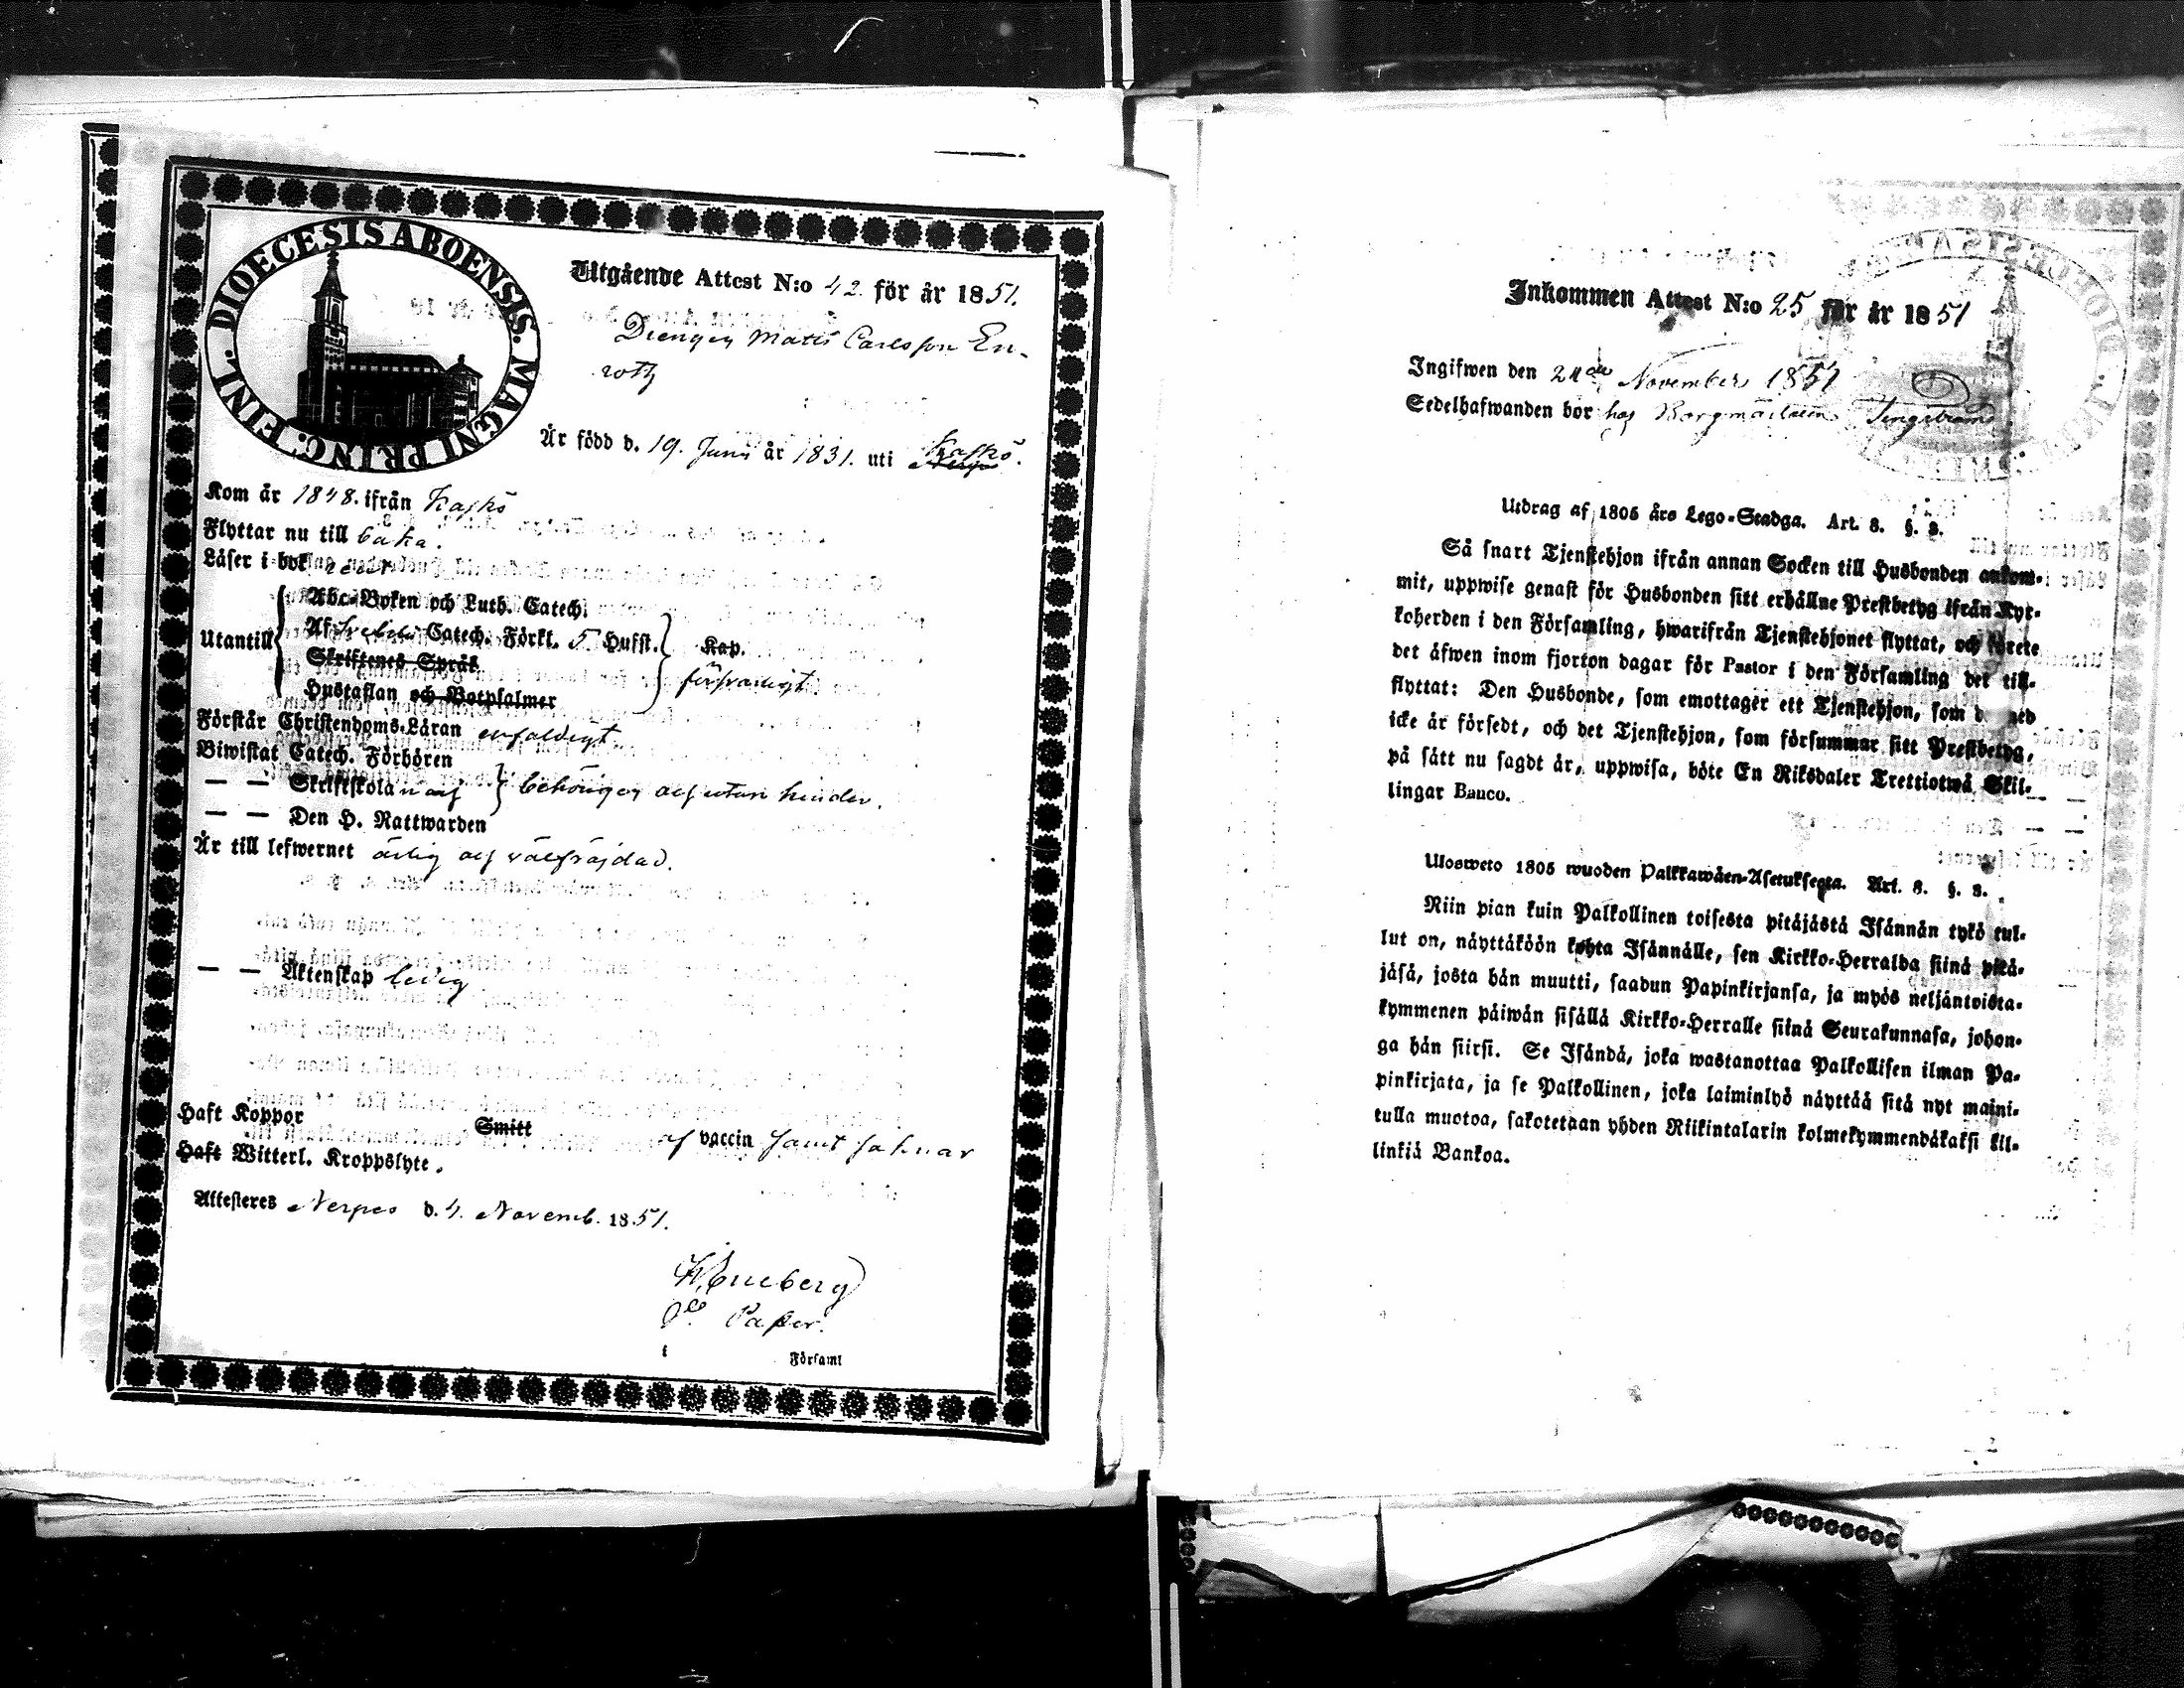 DIOECESIS ABOENSIS. MAGNI PRINC. FINL.
Utgående Attest N:o 42. för år 1851.
Drengen Matts Carlsson En-
roth
Är född d. 19. Junii år 1831. uti Kaskö.
Kom år 1848. ifrån Kaskö
Flyttar nu till baka.
Läser i bok
Abc-Boken och Luth. Catech.
Utantill Af Catech. Förkl. 5 Hufst. Kap.
Skriftenes Språk
Hustaflan och Botpsalmer försvarligt
Förstår Christendoms-Läran enfaldigt
Biwistat Catech. Förhören
— — Skriftskolan och behörigen och utan hinder.
— — Den H. Nattwarden
Är till lefwernet ärlig och välfräjdad.
— — Äktenskap ledig
Haft Koppor Smitt vaccin samt saknar
Haft Witterl. Kroppslyte.
Attesteras Nerpes d. 4. Novemb. 1851.
K. Eneberg
Past.
i Församl
Inkommen Attest N:o 25 för år 1851
Ingifwen den 24de November 1851
Sedelhafwanden bor hos Borgmästaren Tengström
Utdrag af 1805 års Lego-Stadga. Art. 8. §. 3.
Så snart Tjenstehjon ifrån annan Socken till Husbonden ankom-
mit, uppwise genast för Husbonden sitt erhållne Prestbetyg ifrån Kyr-
koherden i den Församling, hwarifrån Tjenstehjonet flyttat, och förete
det äfwen inom fjorton dagar för Pastor i den Församling det till-
flyttat: Den Husbonde, som emottager ett Tjenstehjon, som dermed
icke är försedt, och det Tjenstehjon, som försummar sitt Prestbetyg,
på sätt nu sagdt är, uppwisa, böte En Riksdaler Trettiotwå Skil-
lingar Banco.
Ulosweto 1805 wuoden Palkkawäen-Asetuksesta. Art. 8. §. 3.
Niin pian kuin Palkollinen toisesta pitäjästä Isännän tykö tul-
lut on, näyttäköön kohta Isännälle, sen Kirkko-Herralda siinä pitä-
jäsä, josta hän muutti, saadun Papinkirjansa, ja myös neljäntoista-
kymmenen päiwän sisällä Kirkko-Herralle siinä Seurakunnasa, johon-
ga hän siirsi. Se Isändä, joka wastanottaa Palkollisen ilman Pa-
pinkirjata, ja se Palkollinen, joka laiminlyö näyttää sitä nyt maini-
tulla muotoa, sakotetaan yhden Riikintalarin kolmekymmendäkaksi kil-
linkiä Bankoa.